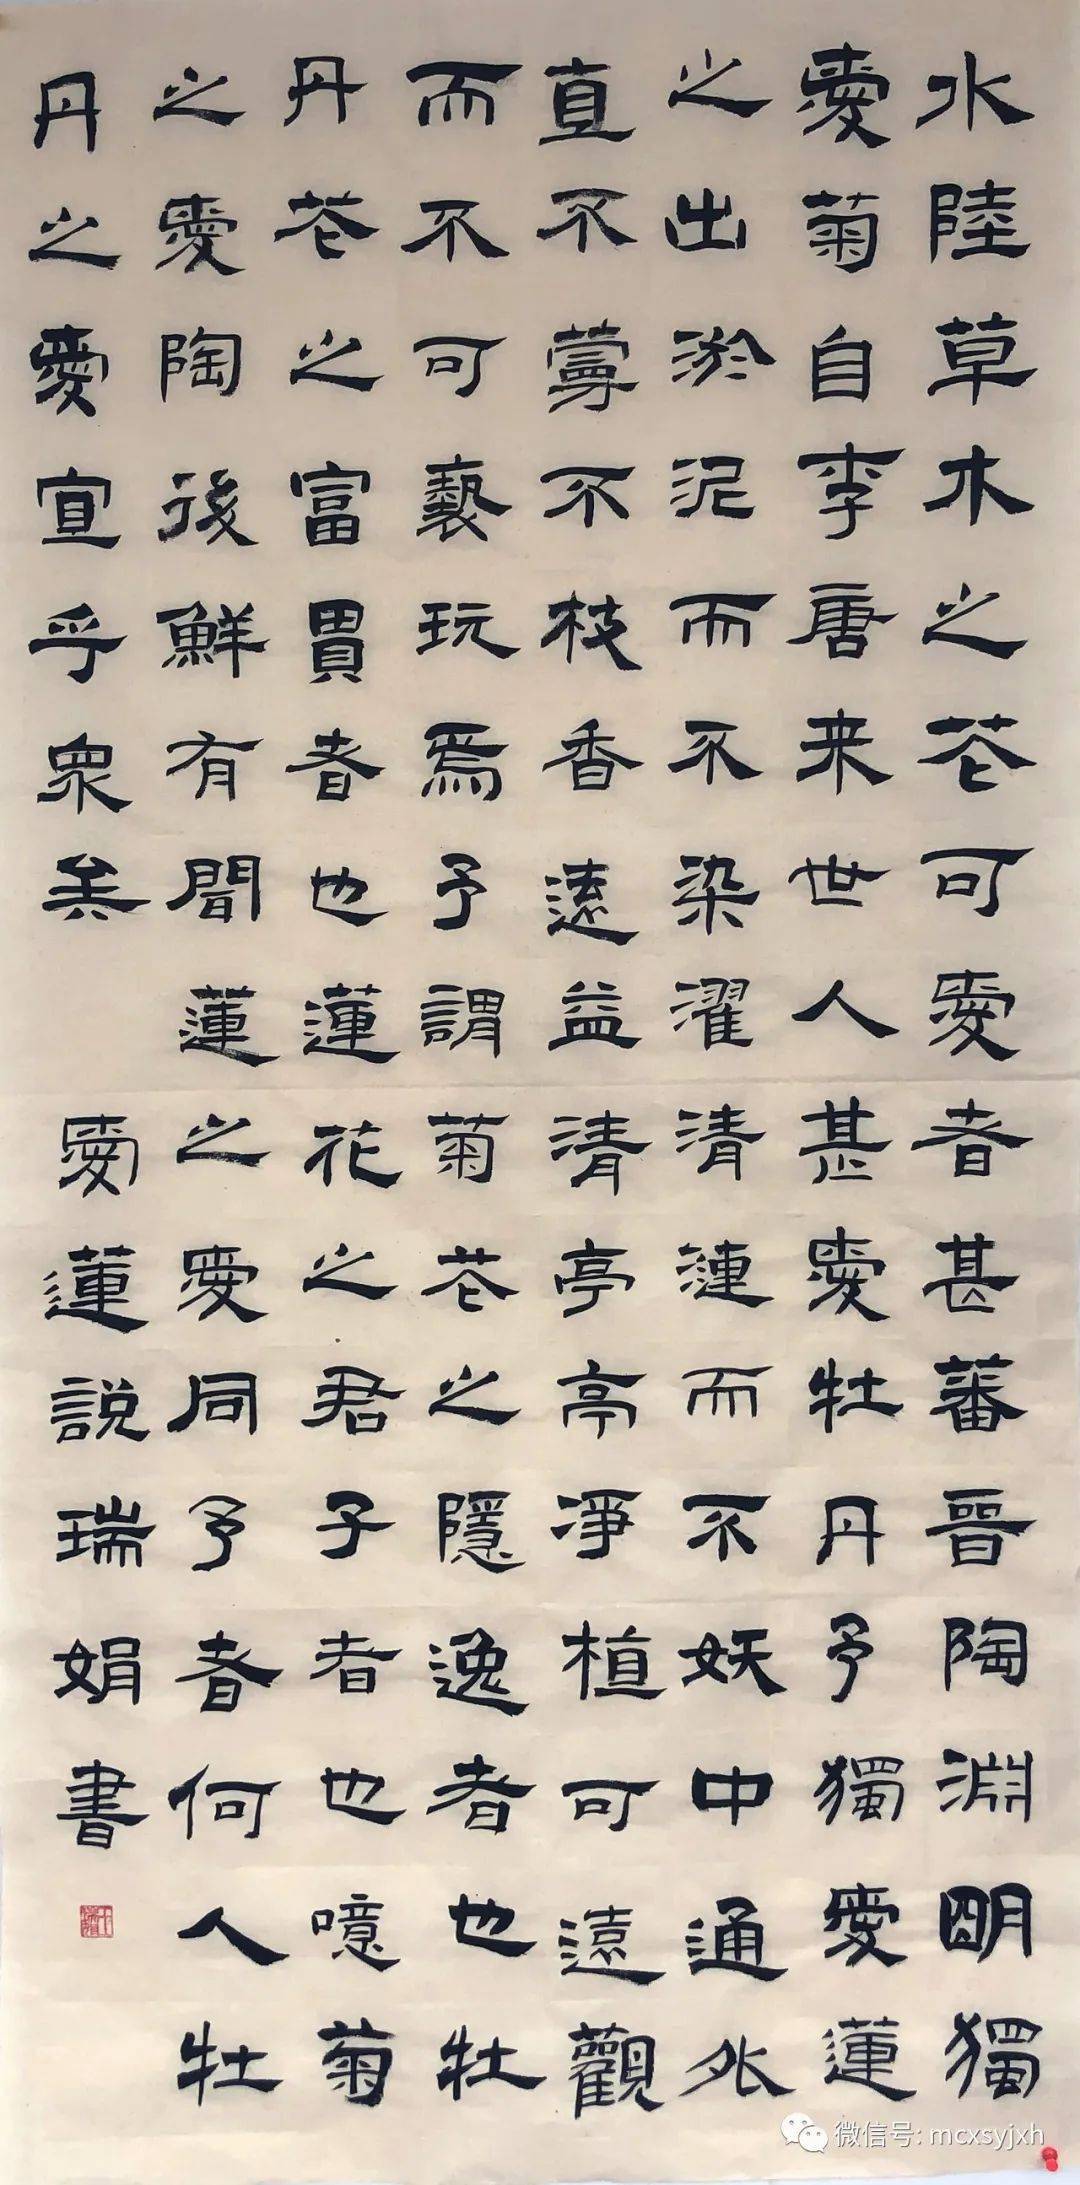 水陸草木之花可愛者甚蕃晉陶淵明獨
愛菊自李唐来世人甚愛牡丹予獨愛蓮
之出淤泥而不染濯清漣而不妖中通外
直不蔓不枝香遠益清亭亭淨植可遠觀
而不可褻玩焉予謂菊花之隱逸者也牡
丹花之富貴者也蓮花之君子者也噫菊
之愛陶後鮮有聞蓮之愛同予者何人牡
丹之愛宜乎眾矣
愛蓮說瑞娟書
微信号: mcxsyjxh